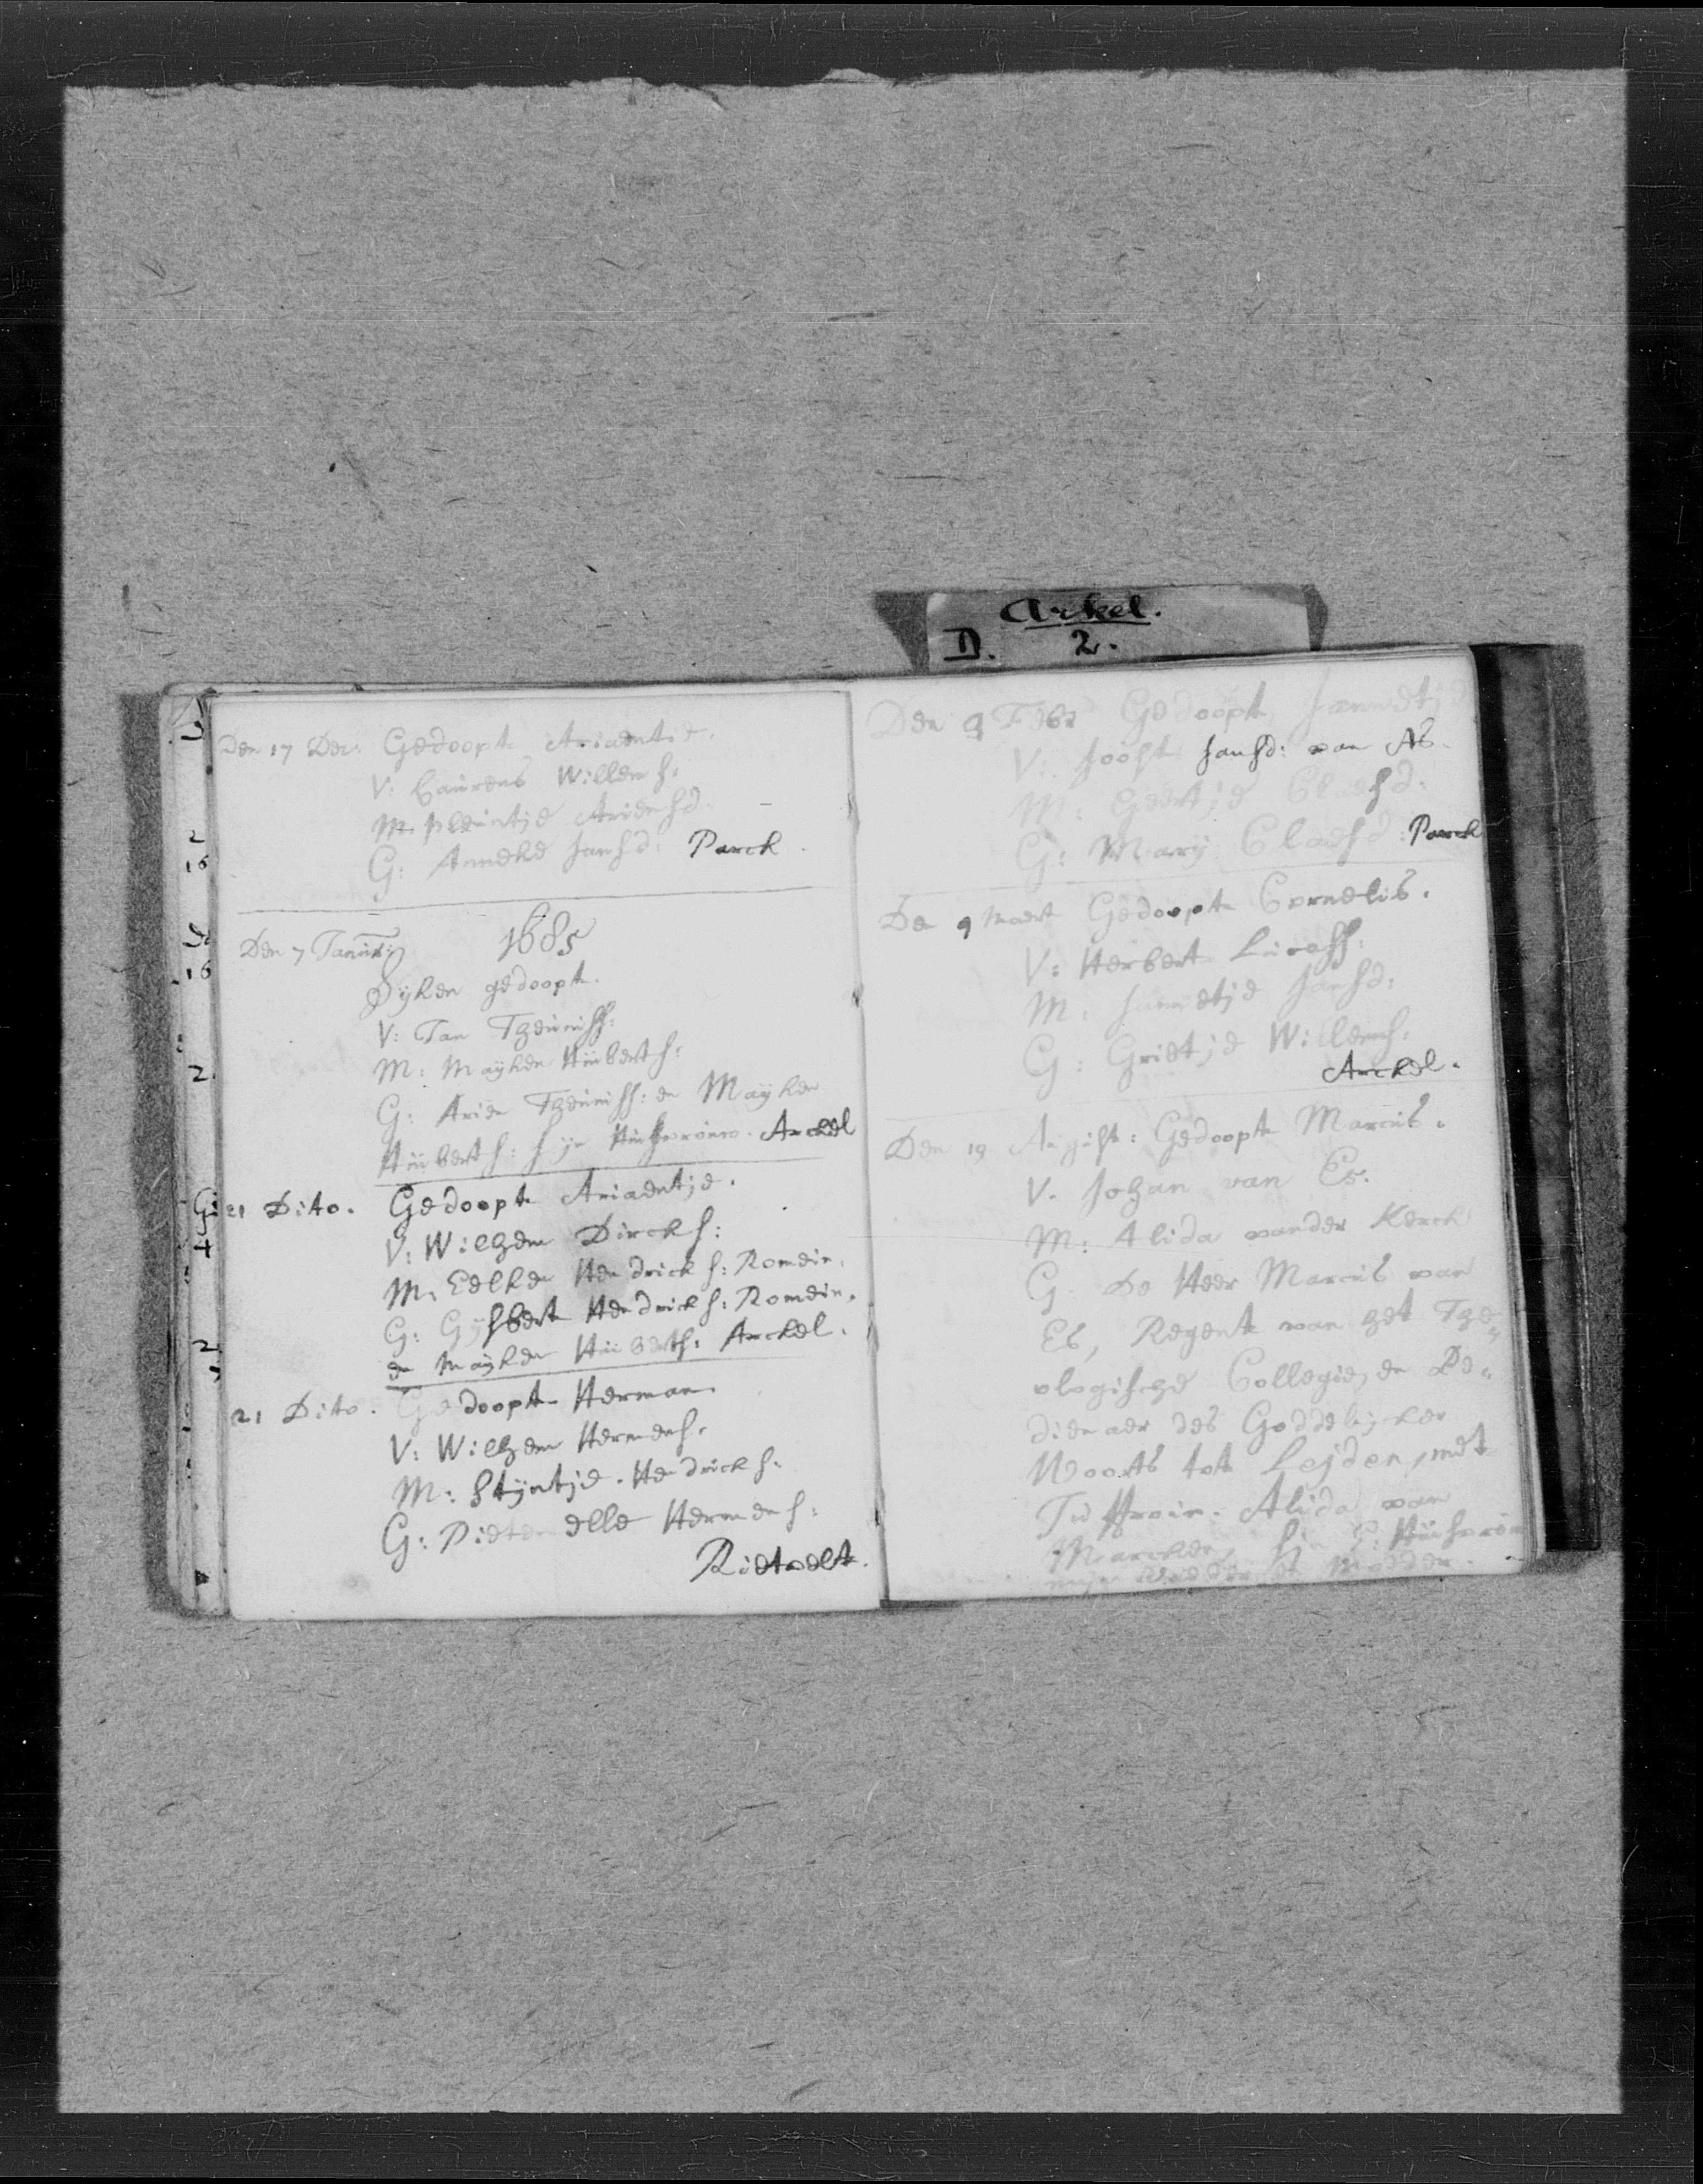 Arkel.
D. 2.
Den 17 Dec: Gedoopt Ariaentie.
V: Laurens Willem s:
M. pleuntje Ariens d.
G: Anneke Jans d: Parck.
1685
Den 7 Januarij
Sijken gedoopt.
V: Jan Theunis s:
M: Maijken Huibert s:
G: Arien Theunis s: en Maijken
Huibert s: sijn Huijsvrouw. Arckel
21 Dito. Gedoopt Ariaentje.
V: Wilhem Dirck s:
M. Eelken Hendrick s: Romein.
G: Gijsbert Hendrick s: Romein.
en Maijken Huibert s: Arckel.
21 Dito. Gedoopt Herman.
V: Wilhem Hermen s.
M: Stijntje Hendrick s:
G: Pieternelle Hermen s:
Rietvelt.
Den 9 Febr Gedoopt Jannetje
V: Joost Jans d: van As.
M: Geertje Claes d.
G: Marij Claes d: Parck
Den 9 Maert Gedoopt Cornelis.
V: Herbert Lucas s:
M: Jannetje Jans d:
G: Grietje Willem s:
Arckel.
Den 19 August: Gedoopt Marcus.
V. Johan van Es.
M: Alida vander Kerck
G. De Heer Marcus van
Es, Regent van het The-
ologische Collegie, en Be-
dienaer des Goddelijcken
Woorts tot Leijden, met
Juffrou: Alida van
Marcken, sijn E: Huijsvrou
mijn Vader et Moeder